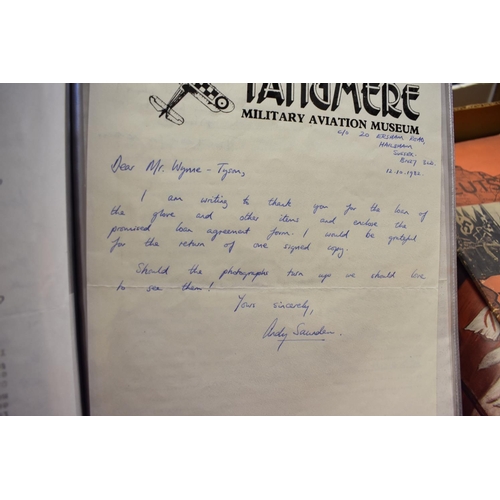 TANGMERE
MILITARY AVIATION MUSEUM
c/o 20
HAILSHAM
SUSSEX
12.10.1982.
Dear Mr. Wynne-Tyson,
I am writing to thank you for the loan of
the glove and other items and enclose the
promised loan agreement form. I would be grateful
for the return of one signed copy.
Should the photographs turn up we should love
to see them!
Yours sincerely,
Andy Saunders.